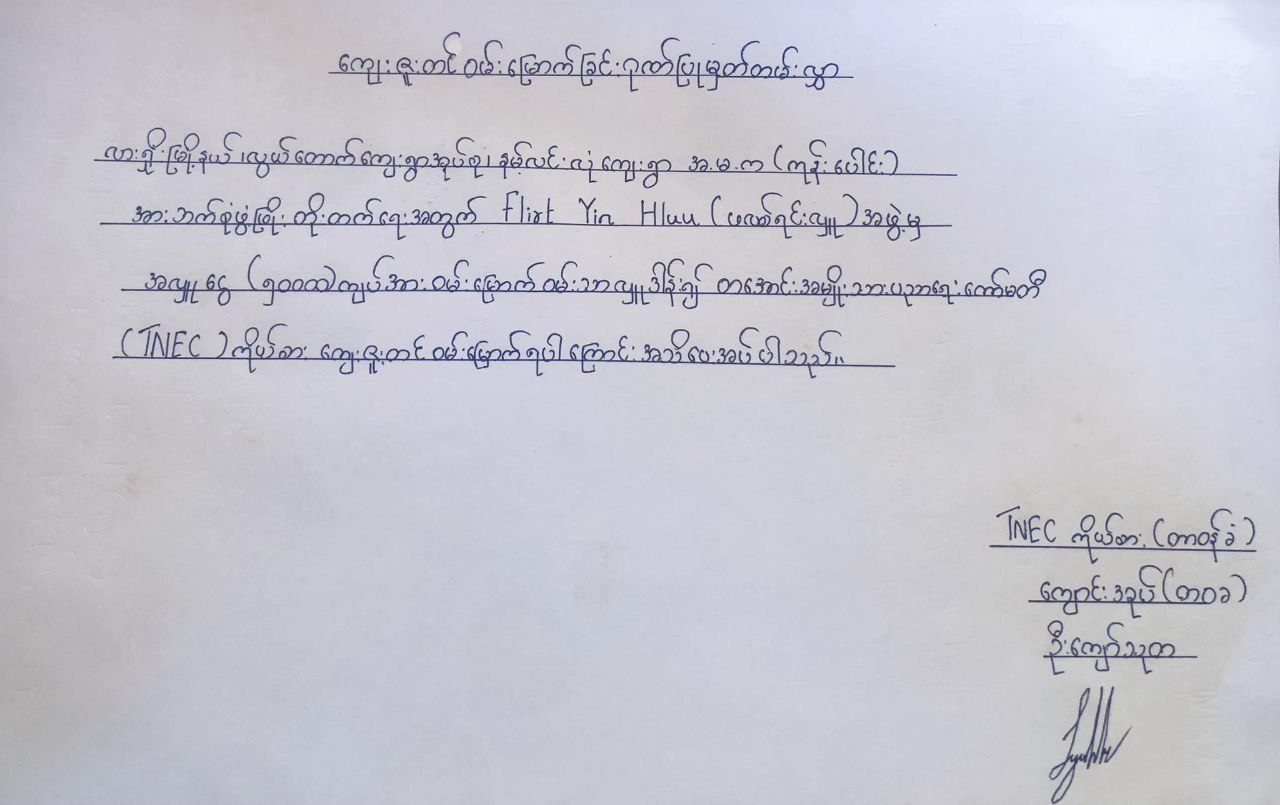 ကျေးဇူးတင်ဝမ်းမြောက်ခြင်းဂုဏ်ပြုမှတ်တမ်းလွှာ
လားရှိုးမြို့နယ်၊လွယ်တောက်ကျေးရွာအုပ်စု၊ နမ့်လင်းလုံကျေးရွာ အ.မ.က (ကုန်းပေါင်း)
အားဘက်စုံဖွံ့ဖြိုးတိုးတက်ရေးအတွက် Flirt Yin Hluu (ဖလတ်ရင်းလျူ) အဖွဲ့မှ
အလှူငွေ (၅၀၀၀၀)ကျပ်အားဝမ်းမြောက်ဝမ်းသာလှူဒါန်း၍ တအောင်းအမျိုးသားပညာရေးကော်မတီ
(TNEC)ကိုယ်စား ကျေးဇူးတင်ဝမ်းမြောက်ရပါကြောင်းအသိပေးအပ်ပါသည်။
TNEC ကိုယ်စား (တာဝန်ခံ)
ကျောင်းအုပ် (တဝခ)
ဦးကျော်သုတ